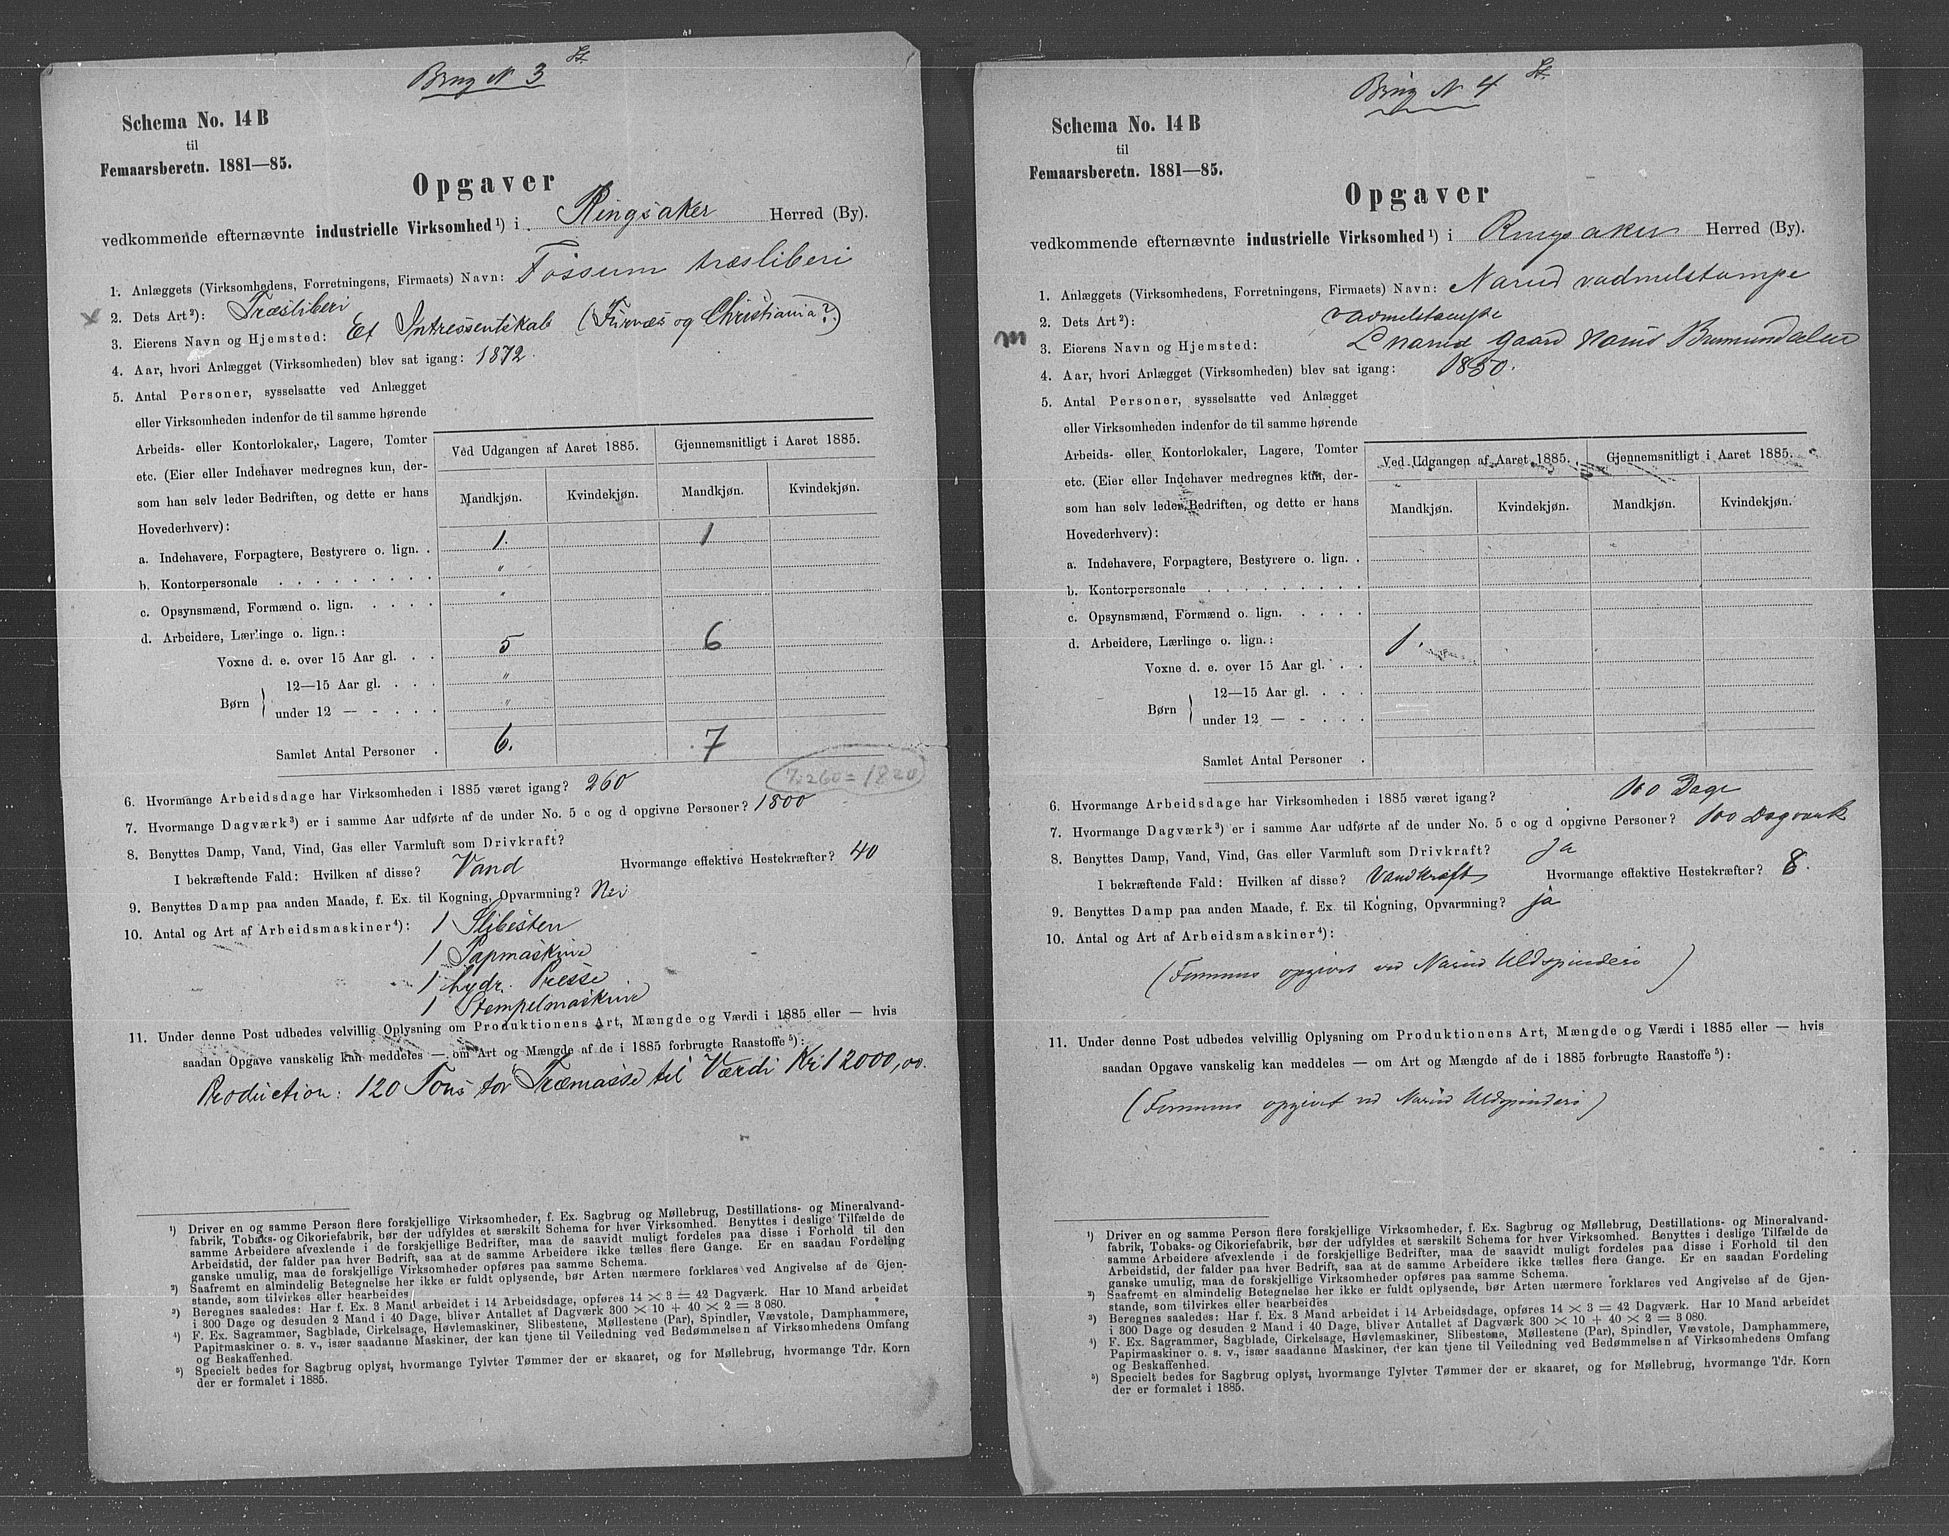 Brug N 3 St.
Schema No. 14 B
til
Femaarsberetn. 1881—85.
Opgaver
vedkommende efternævnte industrielle Virksomhed ¹) i Ringsaker Herred (By).
1. Anlæggets (Virksomhedens, Forretningens, Firmaets) Navn: Fossum træsliberi
2. Dets Art ²): Træsliberi
3. Eierens Navn og Hjemsted: Et Intressentskab (Furnæs og Christiania?)
4. Aar, hvori Anlægget (Virksomheden) blev sat igang: 1872.
5. Antal Personer, sysselsatte ved Anlægget
eller Virksomheden indenfor de til samme hørende
Arbeids- eller Kontorlokaler, Lagere, Tomter
etc. (Eier eller Indehaver medregnes kun, der-
som han selv leder Bedriften, og dette er hans
Hovederhverv):
Ved Udgangen af Aaret 1885. Gjennemsnitligt i Aaret 1885.
Mandkjøn. Kvindekjøn. Mandkjøn. Kvindekjøn.
a. Indehavere, Forpagtere, Bestyrere o. lign. . 1. 1
b. Kontorpersonale . . . . . . . . . "
c. Opsynsmænd, Formænd o. lign. . . . . "
d. Arbeidere, Lærlinge o. lign.:
Voxne d. e. over 15 Aar gl. . . 5 6
Børn { 12—15 Aar gl. . . . "
under 12 — - . . . . "
Samlet Antal Personer . 6. 7
6. Hvormange Arbeidsdage har Virksomheden i 1885 været igang? 260
7 x 260 = 1820
7. Hvormange Dagværk ³) er i samme Aar udførte af de under No. 5 c og d opgivne Personer? 1800
8. Benyttes Damp, Vand, Vind, Gas eller Varmluft som Drivkraft?
I bekræftende Fald: Hvilken af disse? Vand Hvormange effektive Hestekræfter? 40
9. Benyttes Damp paa anden Maade, f. Ex. til Kogning, Opvarmning? Nei
10. Antal og Art af Arbeidsmaskiner ⁴): 1 Slibesten
1 Papmaskine
1 hydr. Presse
1 Stempelmaskine
11. Under denne Post udbedes velvillig Oplysning om Produktionens Art, Mængde og Værdi i 1885 eller — hvis
saadan Opgave vanskelig kan meddeles — om Art og Mængde af de i 1885 forbrugte Raastoffe ⁵):
Production: 120 Tons tor Træmasse til Værdi Kr 12000,00.
¹) Driver en og samme Person flere forskjellige Virksomheder, f. Ex. Sagbrug og Møllebrug, Destillations- og Mineralvand-
fabrik, Tobaks- og Cikoriefabrik, bør der udfyldes et særskilt Schema for hver Virksomhed. Benyttes i deslige Tilfælde de
samme Arbeidere afvexlende i de forskjellige Bedrifter, maa de saavidt muligt fordeles paa disse i Forhold til den
Arbeidstid, der falder paa hver Bedrift, saa at de samme Arbeidere ikke tælles flere Gange. Er en saadan Fordeling
ganske umulig, maa de forskjellige Virksomheder opføres paa samme Schema.
²) Saafremt en almindelig Betegnelse her ikke er fuldt oplysende, bør Arten nærmere forklares ved Angivelse af de Gjen-
stande, som tilvirkes eller bearbeides
³) Beregnes saaledes: Har f. Ex. 3 Mand arbeidet i 14 Arbeidsdage, opføres 14 × 3 = 42 Dagværk. Har 10 Mand arbeidet
i 300 Dage og desuden 2 Mand i 40 Dage, bliver Antallet af Dagværk 300 × 10 + 40 × 2 = 3 080.
⁴) F. Ex. Sagrammer, Sagblade, Cirkelsage, Høvlemaskiner, Slibestene, Møllestene (Par), Spindler, Vævstole, Damphammere,
Papirmaskiner o. s. v., især saadanne Maskiner, der kan tjene til Veiledning ved Bedømmelsen af Virksomhedens Omfang
og Beskaffenhed.
⁵) Specielt bedes for Sagbrug oplyst, hvormange Tylvter Tømmer der er skaaret, og for Møllebrug, hvormange Tdr. Korn
der er formalet i 1885.
Brug N 4 St.
Schema No. 14 B
til
Femaarsberetn. 1881—85.
Opgaver
vedkommende efternævnte industrielle Virksomhed ¹) i Ringsaker Herred (By).
1. Anlæggets (Virksomhedens, Forretningens, Firmaets) Navn: Narud vadmelstampe
2. Dets Art ²): vadmelstampe
3. Eierens Navn og Hjemsted: L Narud Gaard Narud Brumunddalen
4. Aar, hvori Anlægget (Virksomheden) blev sat igang: 1850.
5. Antal Personer, sysselsatte ved Anlægget
eller Virksomheden indenfor de til samme hørende
Arbeids- eller Kontorlokaler, Lagere, Tomter
etc. (Eier eller Indehaver medregnes kun, der-
som han selv leder Bedriften, og dette er hans
Hovederhverv):
Ved Udgangen af Aaret 1885. Gjennemsnitligt i Aaret 1885.
Mandkjøn. Kvindekjøn. Mandkjøn. Kvindekjøn.
a. Indehavere, Forpagtere, Bestyrere o. lign. .
b. Kontorpersonale . . . . . . . . .
c. Opsynsmænd, Formænd o. lign. . . . .
d. Arbeidere, Lærlinge o. lign.: 1.
Voxne d. e. over 15 Aar gl. . .
Børn { 12—15 Aar gl. . . .
under 12 — - . . . .
Samlet Antal Personer .
6. Hvormange Arbeidsdage har Virksomheden i 1885 været igang? 100 Dage
7. Hvormange Dagværk ³) er i samme Aar udførte af de under No. 5 c og d opgivne Personer? 100 Dagværk
8. Benyttes Damp, Vand, Vind, Gas eller Varmluft som Drivkraft? ja
I bekræftende Fald: Hvilken af disse? Vandkraft Hvormange effektive Hestekræfter? 8.
9. Benyttes Damp paa anden Maade, f. Ex. til Kogning, Opvarmning? ja
10. Antal og Art af Arbeidsmaskiner ⁴):
(Formens opgivet ved Narud Uldspinderi)
11. Under denne Post udbedes velvillig Oplysning om Produktionens Art, Mængde og Værdi i 1885 eller — hvis
saadan Opgave vanskelig kan meddeles — om Art og Mængde af de i 1885 forbrugte Raastoffe ⁵):
(Formens opgivet ved Narud Uldspinderi)
¹) Driver en og samme Person flere forskjellige Virksomheder, f. Ex. Sagbrug og Møllebrug, Destillations- og Mineralvand-
fabrik, Tobaks- og Cikoriefabrik, bør der udfyldes et særskilt Schema for hver Virksomhed. Benyttes i deslige Tilfælde de
samme Arbeidere afvexlende i de forskjellige Bedrifter, maa de saavidt muligt fordeles paa disse i Forhold til den
Arbeidstid, der falder paa hver Bedrift, saa at de samme Arbeidere ikke tælles flere Gange. Er en saadan Fordeling
ganske umulig, maa de forskjellige Virksomheder opføres paa samme Schema.
²) Saafremt en almindelig Betegnelse her ikke er fuldt oplysende, bør Arten nærmere forklares ved Angivelse af de Gjen-
stande, som tilvirkes eller bearbeides
³) Beregnes saaledes: Har f. Ex. 3 Mand arbeidet i 14 Arbeidsdage, opføres 14 × 3 = 42 Dagværk. Har 10 Mand arbeidet
i 300 Dage og desuden 2 Mand i 40 Dage, bliver Antallet af Dagværk 300 × 10 + 40 × 2 = 3 080.
⁴) F. Ex. Sagrammer, Sagblade, Cirkelsage, Høvlemaskiner, Slibestene, Møllestene (Par), Spindler, Vævstole, Damphammere,
Papirmaskiner o. s. v., især saadanne Maskiner, der kan tjene til Veiledning ved Bedømmelsen af Virksomhedens Omfang
og Beskaffenhed.
⁵) Specielt bedes for Sagbrug oplyst, hvormange Tylvter Tømmer der er skaaret, og for Møllebrug, hvormange Tdr. Korn
der er formalet i 1885.